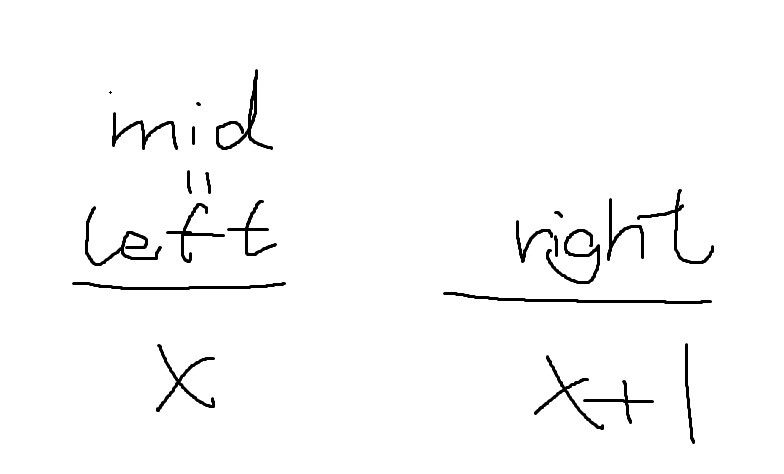 mid
=
left right
x x+1